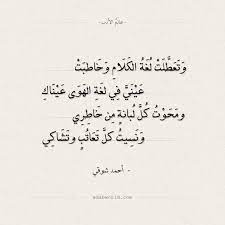 عالم الأدب
وَتَعَطَّلَتْ لُغَةُ الكَلَامِ وَخَاطَبَتْ
عَيْنَيَّ فِي لُغَةِ الهَوَى عَيْنَاكِ
وَمَحَوْتُ كُلَّ لُبَانَةٍ مِن خَاطِرِي
وَنَسِيتُ كُلَّ تَعَاتُبٍ وَتَشَاكِي
- أحمد شوقي -
adabworld.com